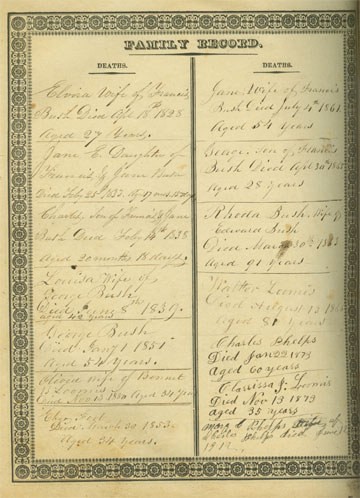 FAMILY RECORD.
DEATHS.
Elvira Wife of Francis
Bush Died Apl 18th 1828
Aged 27 Years.
Jane E. Daughter of
Francis & Jane Bush
Died Feby 25th 1837. Aged
Charles, Son of Francis & Jane
Bush Died Feby 14th 1838
Aged 20 months 18 days
Louisa Wife of
George Bush
Died 8th 1839.
Aged
George Bush
Died Jany 1 1851
Aged 54 Years.
Wife of Bennet
Died Nov 13 1850 Aged 34 Years
Died March 30 1853
Aged 34 Years.
DEATHS.
Jane Wife of Francis
Bush Died July 4th 1861
Aged 54 Years
George, Son of Francis
Bush Died Apl 30th
Aged 28 Years
Rhoda Bush Wife of
Edward Bush
Died March 30th
Aged 91 Years
Walter Loomis
Died August 13
Aged 81 Years
Charles Phelps
Died Jan 22 1873
Aged 60 Years
Clarrissa J. Loomis
Died Nov 13 1873
Aged 35 Years
Mary Phelps of
Charles Phelps died June